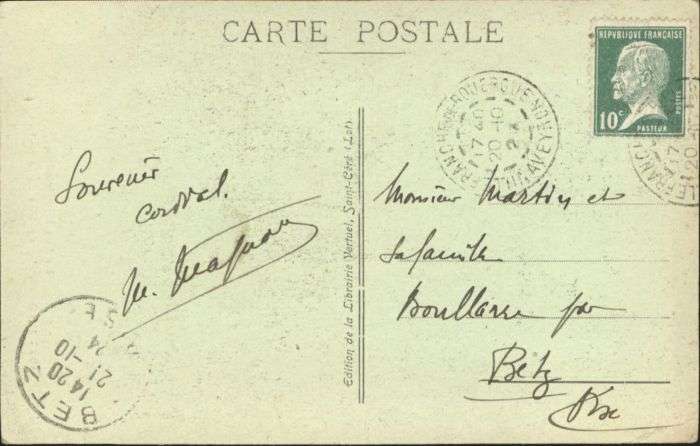 CARTE POSTALE
REPVBLIQUE FRANÇAISE
10c
POSTES
PASTEUR
VILLEFRANCHE DE ROUERGUE
AVEYRON
17 40
20-10
24
Souvenir
cordial.
M.
Edition de la Librairie Vertuel, Saint-Céré (Lot)
Monsieur Martin et
sa famille
Boullarre par
Betz
Oise
BETZ
OISE
14 20
21-10
24